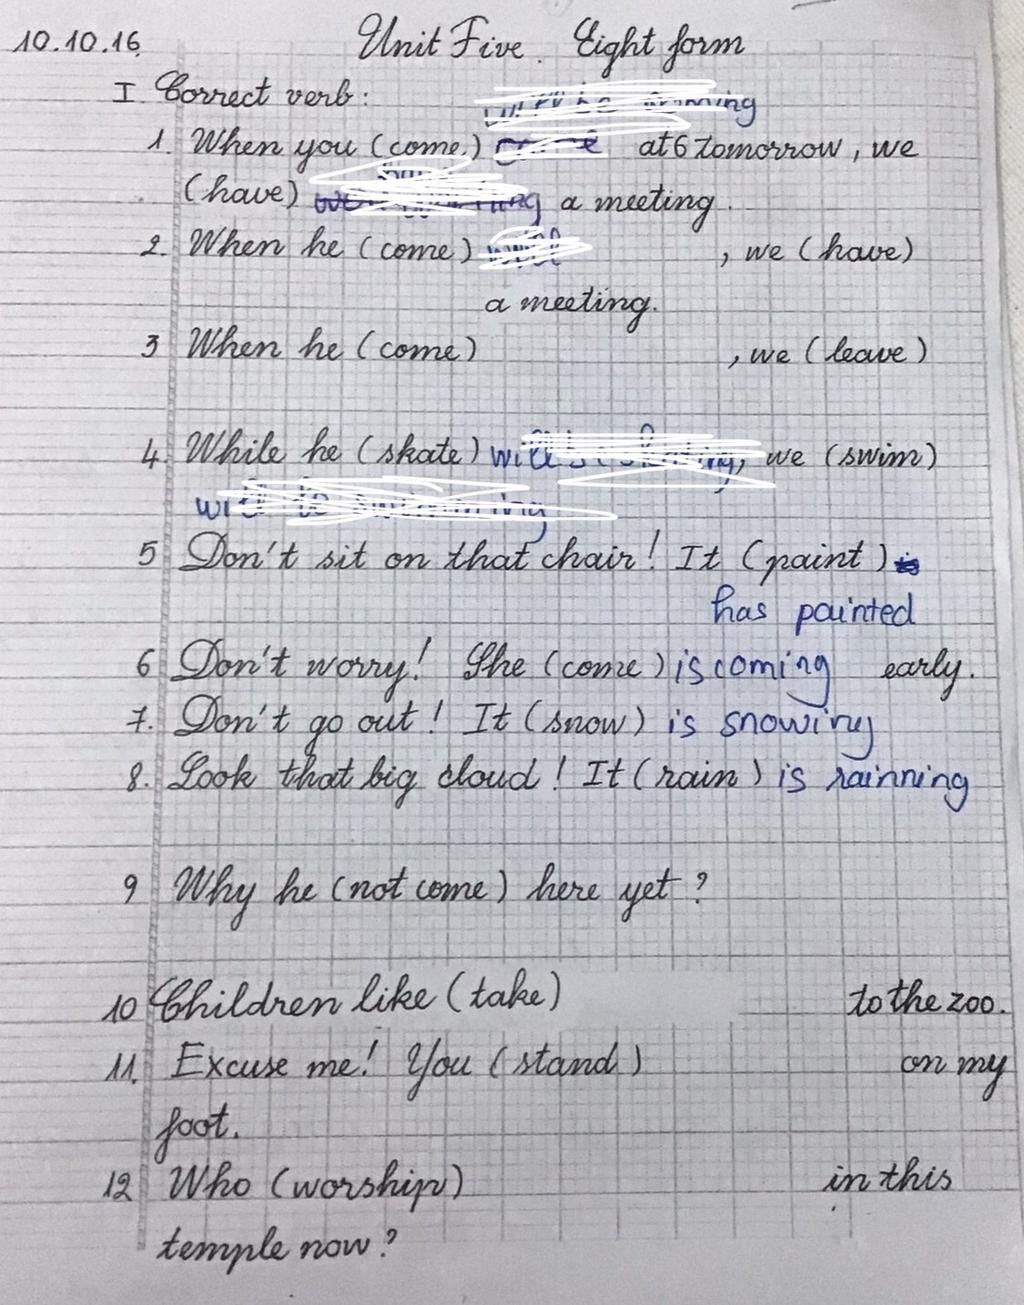 10.10.16. Unit Five. Eight form
I. Correct verb:
1. When you (come) at 6 tomorrow, we
(have) a meeting.
2. When he (come) , we (have)
a meeting.
3 When he (come) , we (leave)
4. While he (skate) we (swim)
5 Don't sit on that chair! It (paint)
has painted
6 Don't worry! She (come) is coming early.
7. Don't go out! It (snow) is snowing
8. Look that big cloud! It (rain) is rainning
9 Why he (not come) here yet?
10 Children like (take) to the zoo.
11. Excuse me! You (stand) on my
foot.
12 Who (worship) in this
temple now?